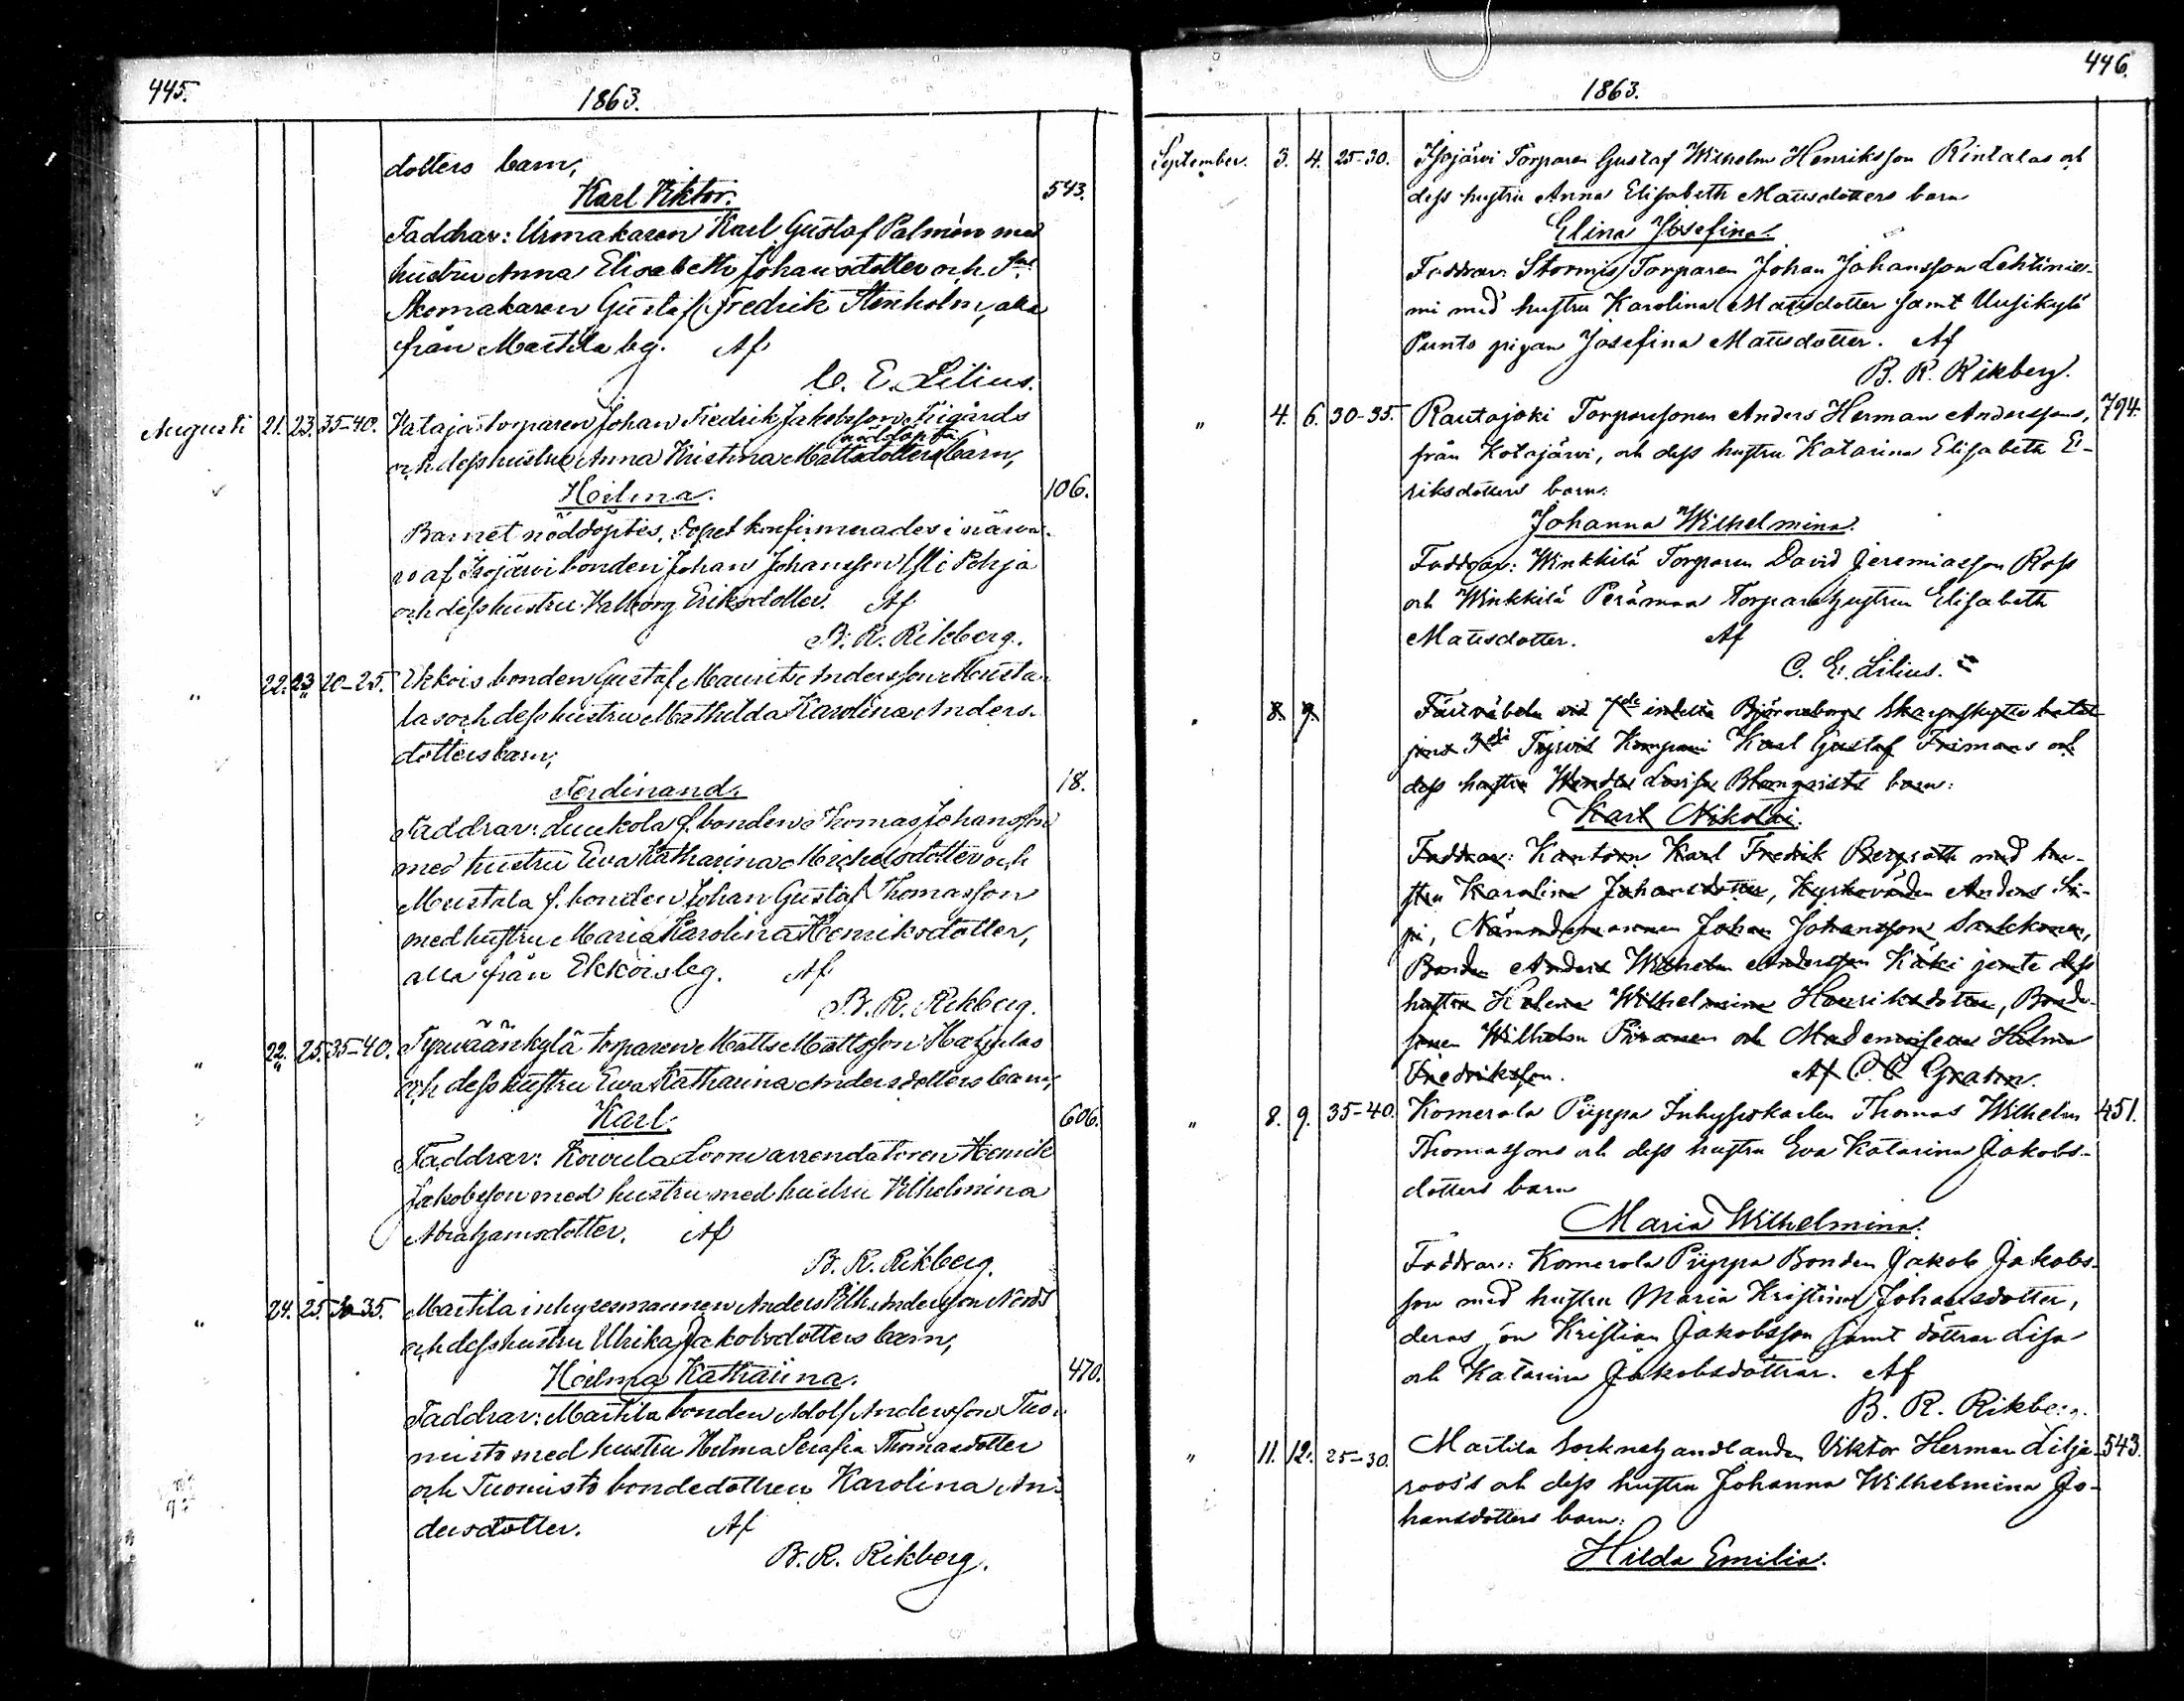 445.
1863.
dotters barn,
Karl Viktor. 543.
Faddrar: Urmakaren Karl Gustaf Palmén med
hustru Anna Elisabeth Johansdotter och
Skomakaren Gustaf Fredrik Stenholm, alla
från Marttila bg. Af
C. E. Lilius.
Augusti 21. 23. 35-40. Kataja torparen Johan Fredrik Jakobsson Trigårds
nöddöpta
och dess hustru Anna Kristina Mattsdotters barn,
Hilma. 106.
Barnet nöddöptes. Dopet konfirmerades i närva-
ro af Isojärvi bonden Johan Johansson Yli Pohja
och dess hustru Valborg Eriksdotter. Af
B. R. Rikberg.
" 22. 23. 20-25. Ekkois bonden Gustaf Maurits Andersson Musta-
las och dess hustru Mathilda Karolina Anders-
dotters barn,
Ferdinand. 18.
Faddrar: Luukola f. bonden Thomas Johansson
med hustru Ewa Katharina Michelsdotter och
Mustala f. bonden Johan Gustaf Thomasson
med hustru Maria Karolina Henriksdotter,
alla från Ekkois bg. Af
B. R. Rikberg.
" 22. 25. 35-40. Tyrväänkylä torparen Matts Mattsson
och dess hustru Ewa Katharina Andersdotters barn,
Karl. 606.
Faddrar: Kowula arrendatoren Henrik
Jakobsson med hustru med hustru Vilhelmina
Abrahamsdotter. Af
B. R. Rikberg.
" 24. 25. 30-35. Marttila inhysesmannen Anders Vilh. Andersson
och dess hustru Ulrika Jakobsdotters barn,
Hilma Katharina. 470.
Faddrar: Marttila bonden Adolf Andersson Tuo-
misto med hustru Helma Serafia Thomasdotter
och Tuomisto bondedottren Karolina An-
dersdotter. Af
B. R. Rikberg.
446.
1863.
September. 3. 4. 25-30. Isojärvi Torparen Gustaf Wilhelm Henriksson Rintalas och
dess hustru Anna Elisabeth Mattsdotters barn
Elina Josefina.
Faddrar: Stormis Torparen Johan Johansson Lehtinie-
mi med hustru Karolina Mattsdotter samt Uusikylä
Punto pigan Josefina Mattsdotter. Af
B. R. Rikberg.
" 4. 6. 30-35. Rautajoki Torparsonen Anders Herman Anderssons, 794.
från Kotajärvi, och dess hustru Katarina Elisabeth E-
riksdotters barn:
Johanna Wilhelmina.
Faddrar: Winkkilä Torparen David Jeremiasson Ross
och Winkkilä Perämaa Torparehustrun Elisabeth
Mattsdotter. Af
C. E. Lilius.
" 8. 9. Fältväbeln vid 7de indelta Björneborgs Skarpskytte batal-
jons 3dje Tyrvis Kompani Karl Gustaf Frimans och
dess hustru Lovisa Blomqvists barn:
Karl Nikolai.
Faddrar: Kantorn Karl Fredrik Bergroth med hu-
stru Karolina Johansdotter, Kyrkovärden Anders Si-
pi, Nämndemannen Johan Johansson Sarkkonen,
Bonden Anders Wilhelm Andersson Käki jemte dess
hustru Helena Wilhelmina Henriksdotter, Bonde-
sonen Wilhelm och Mademoisellen Hilma
Fredriksson. Af C. C. Grahn.
" 8. 9. 35-40. Komerola Pyppa Inhyseskarlen Thomas Wilhelm 451.
Thomassons och dess hustru Eva Katarina Jakobs-
dotters barn
Maria Wilhelmina.
Faddrar: Komerola Pyppa Bonden Jakob Jakobs-
son med hustru Maria Kristina Johansdotter,
deras son Kristian Jakobsson samt döttrar Lisa
och Katarina Jakobsdöttrar. Af
B. R. Rikberg.
" 11. 12. 25-30. Marttila Socknehandlanden Viktor Herman Lilje- 543.
roos's och dess hustru Johanna Wilhelmina Jo-
hansdotters barn:
Hilda Emilia.